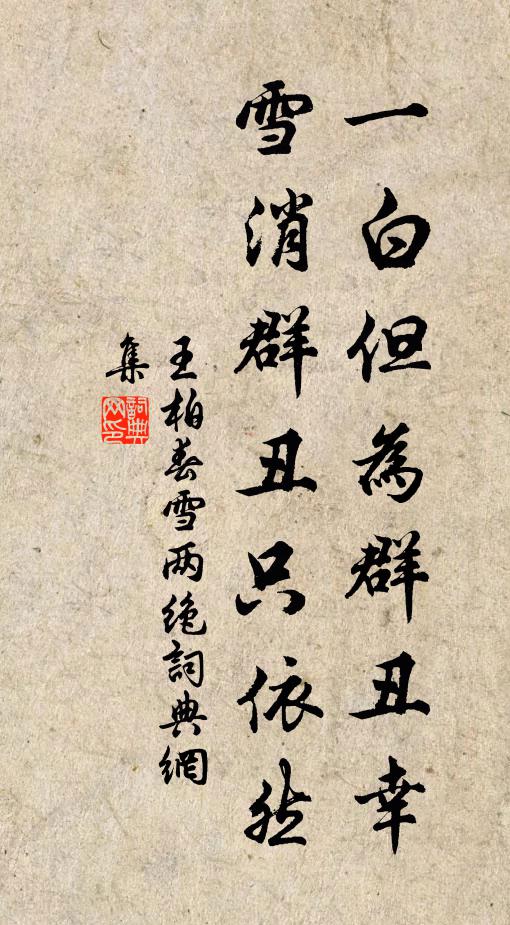 一白但為群丑幸
雪消群丑只依然
王柏春雪两绝詞典網
集
詞典网印